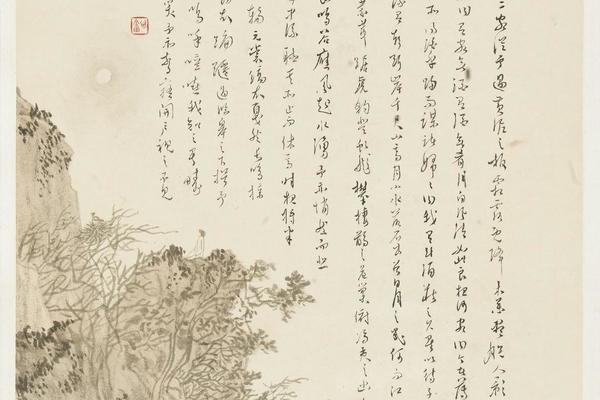 二客從予過黃泥之坂霜露既降木葉盡脫人影
曰有客無酒有酒無肴月白風清如此良夜何客曰今者薄
所得酒乎歸而謀諸婦婦曰我有斗酒藏之久矣以待子
有聲斷岸千尺山高月小水落石出曾日月之幾何而江
蒙茸踞虎豹登虬龍攀棲鶻之危巢俯馮夷之幽
山鳴谷應風起水湧予亦悄然而悲
中流聽其所止而休焉時夜將半
輪元裳縞衣戛然長鳴掠
衣蹁躚過臨皋之下揖予
嗚呼噫嘻我知之矣疇
笑予亦驚寤開戶視之不見